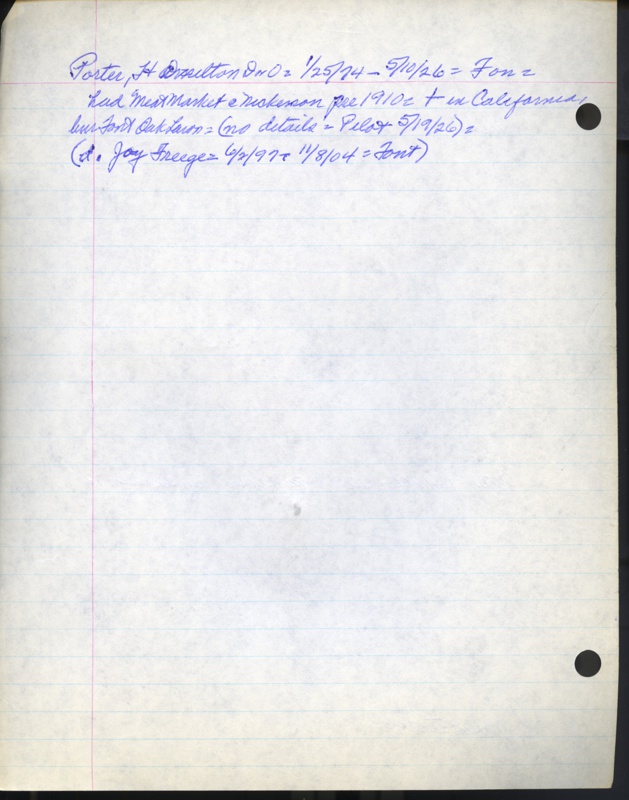 Porter, H 1/25/74 - 5/10/26 = Fon =
had Meat Market @ Dickerson pre 1910 = + in California,
bur Font Oak Lawn = (no details = Pilot 5/19/26) =
(d. Joy Freege = 6/2/97 - 11/8/04 = Font)